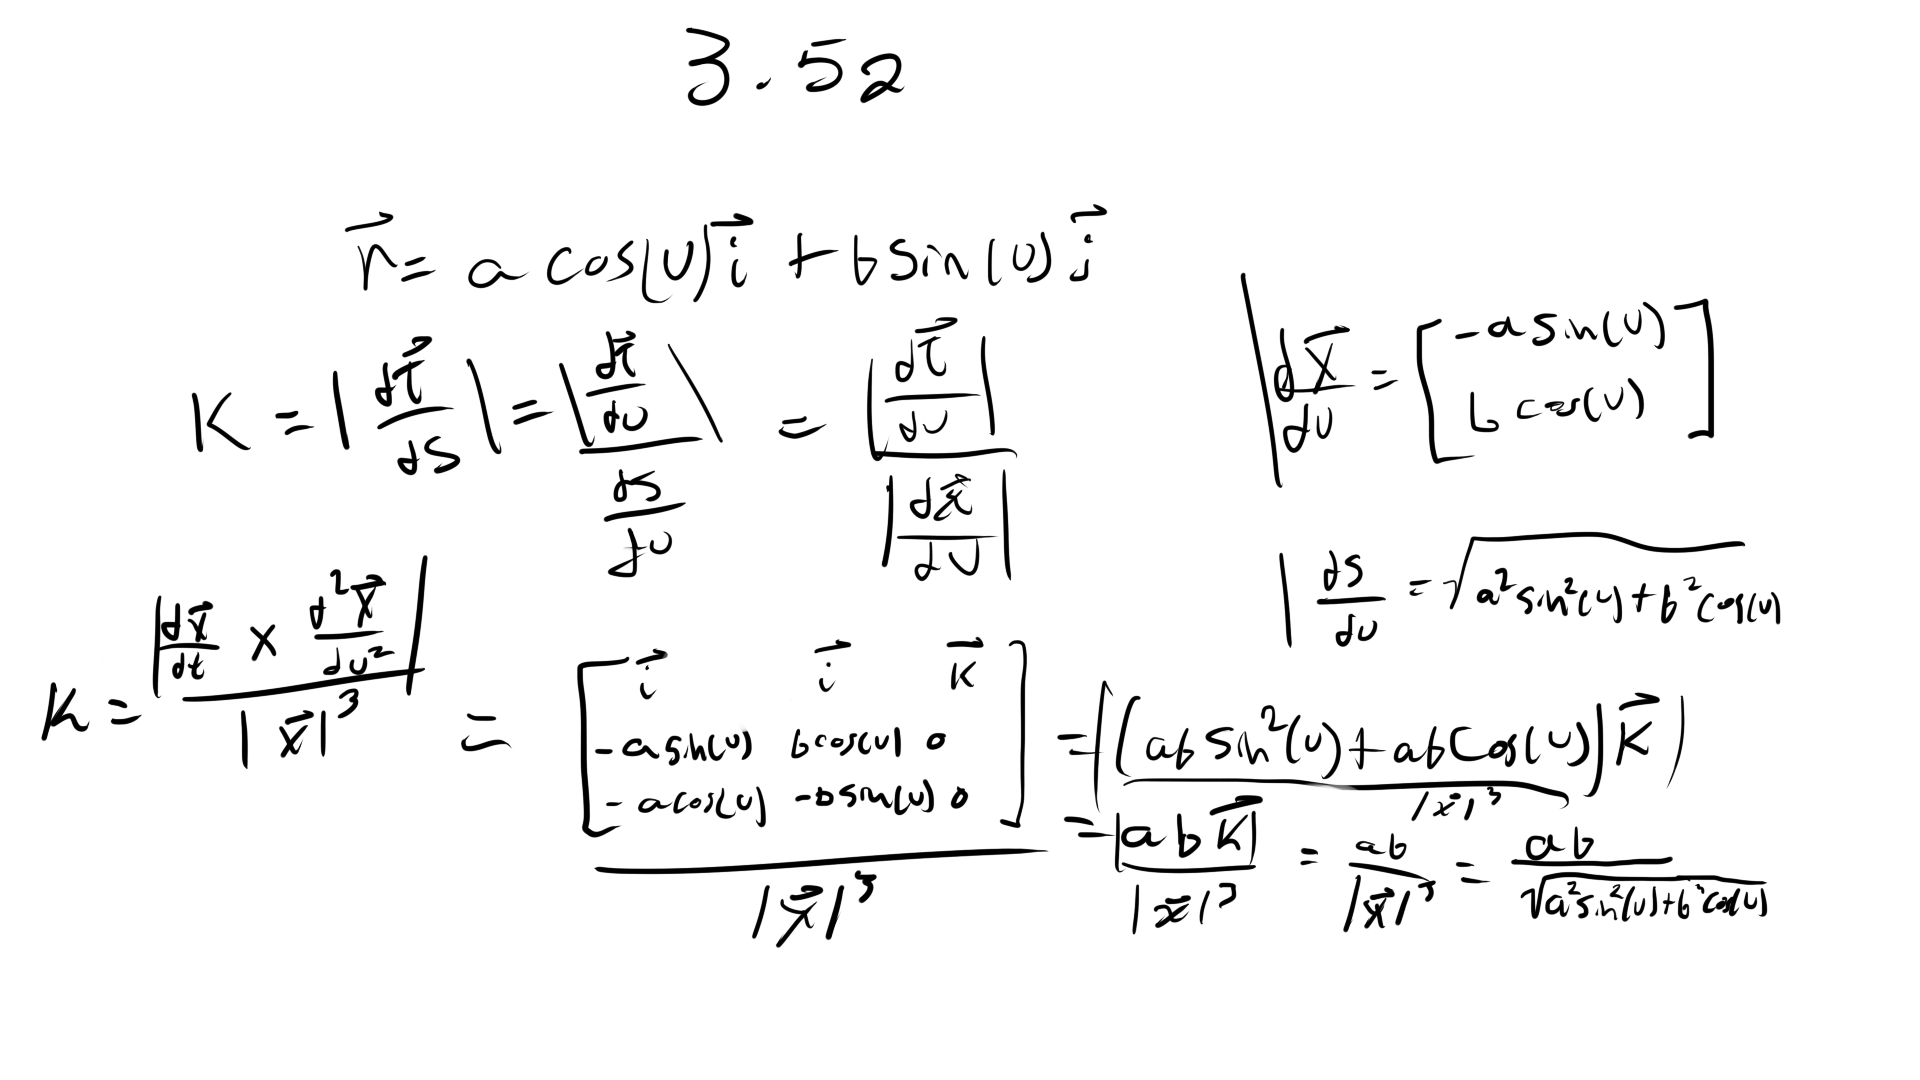 3.52
r⃗ = a cos(u) i⃗ + b sin(u) j⃗
K = |dt⃗/ds| = |dt⃗/du| / (ds/du) = |dt⃗/du| / |dx⃗/du|
|dx⃗/du = [-a sin(u) b cos(u)]
|ds/du = √(a² sin²(u) + b² cos(u))
K = |dx⃗/dt × d²x⃗/du²| / |x⃗|³ = [i⃗ i⃗ k⃗; -a sin(u) b cos(u) 0; -a cos(u) -b sin(u) 0] / |x⃗|³ = |(ab sin²(u) + ab cos(u)) k⃗| / |x⃗|³
= |ab k⃗| / |x⃗|³ = ab / |x⃗|³ = ab / √(a² sin²(u) + b² cos(u))